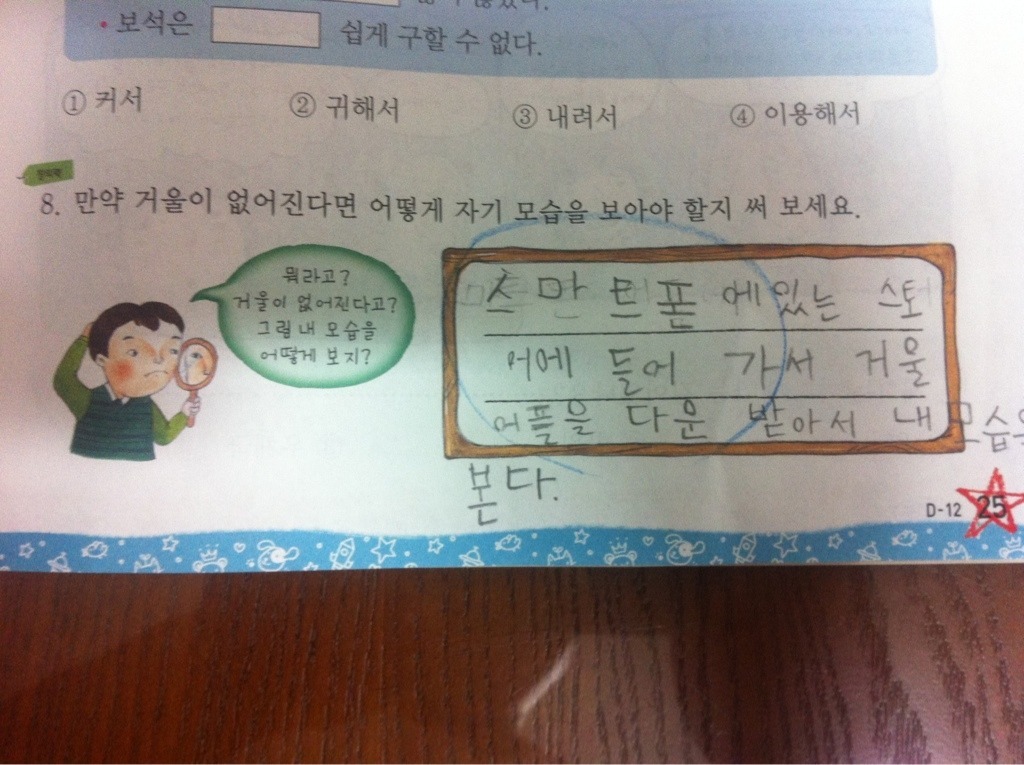 • 보석은 쉽게 구할 수 없다.
① 커서 ② 귀해서 ③ 내려서 ④ 이용해서
8. 만약 거울이 없어진다면 어떻게 자기 모습을 보아야 할지 써 보세요.
뭐라고?
거울이 없어진다고?
그럼 내 모습을
어떻게 보지?
스만트폰에 있는 스토
어에 들어 가서 거울
어플을 다운 받아서 내 모습을
본다.
D-12 25